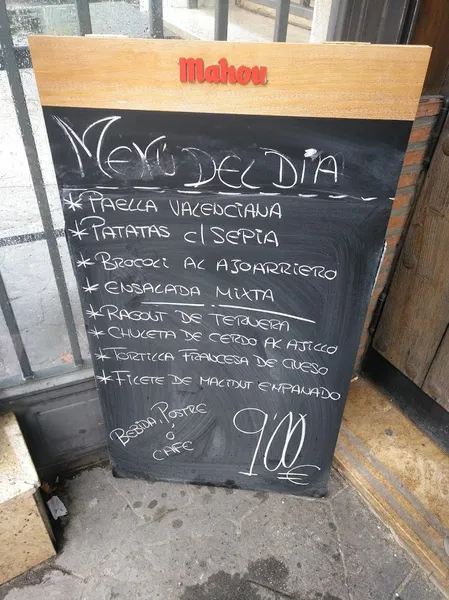 Mahou
MENÚ DEL DÍA
* PAELLA VALENCIANA
* PATATAS c/SEPIA
* BROCOLI AL AJOARRIERO
* ENSALADA MIXTA
* RAGOUT DE TERNERA
* CHULETA DE CERDO AL AJILLO
* TORTILLA FRANCESA DE QUESO
* FILETE DE HALIBUT EMPANADO
BEBIDA, POSTRE
ó
CAFE
9'00 €